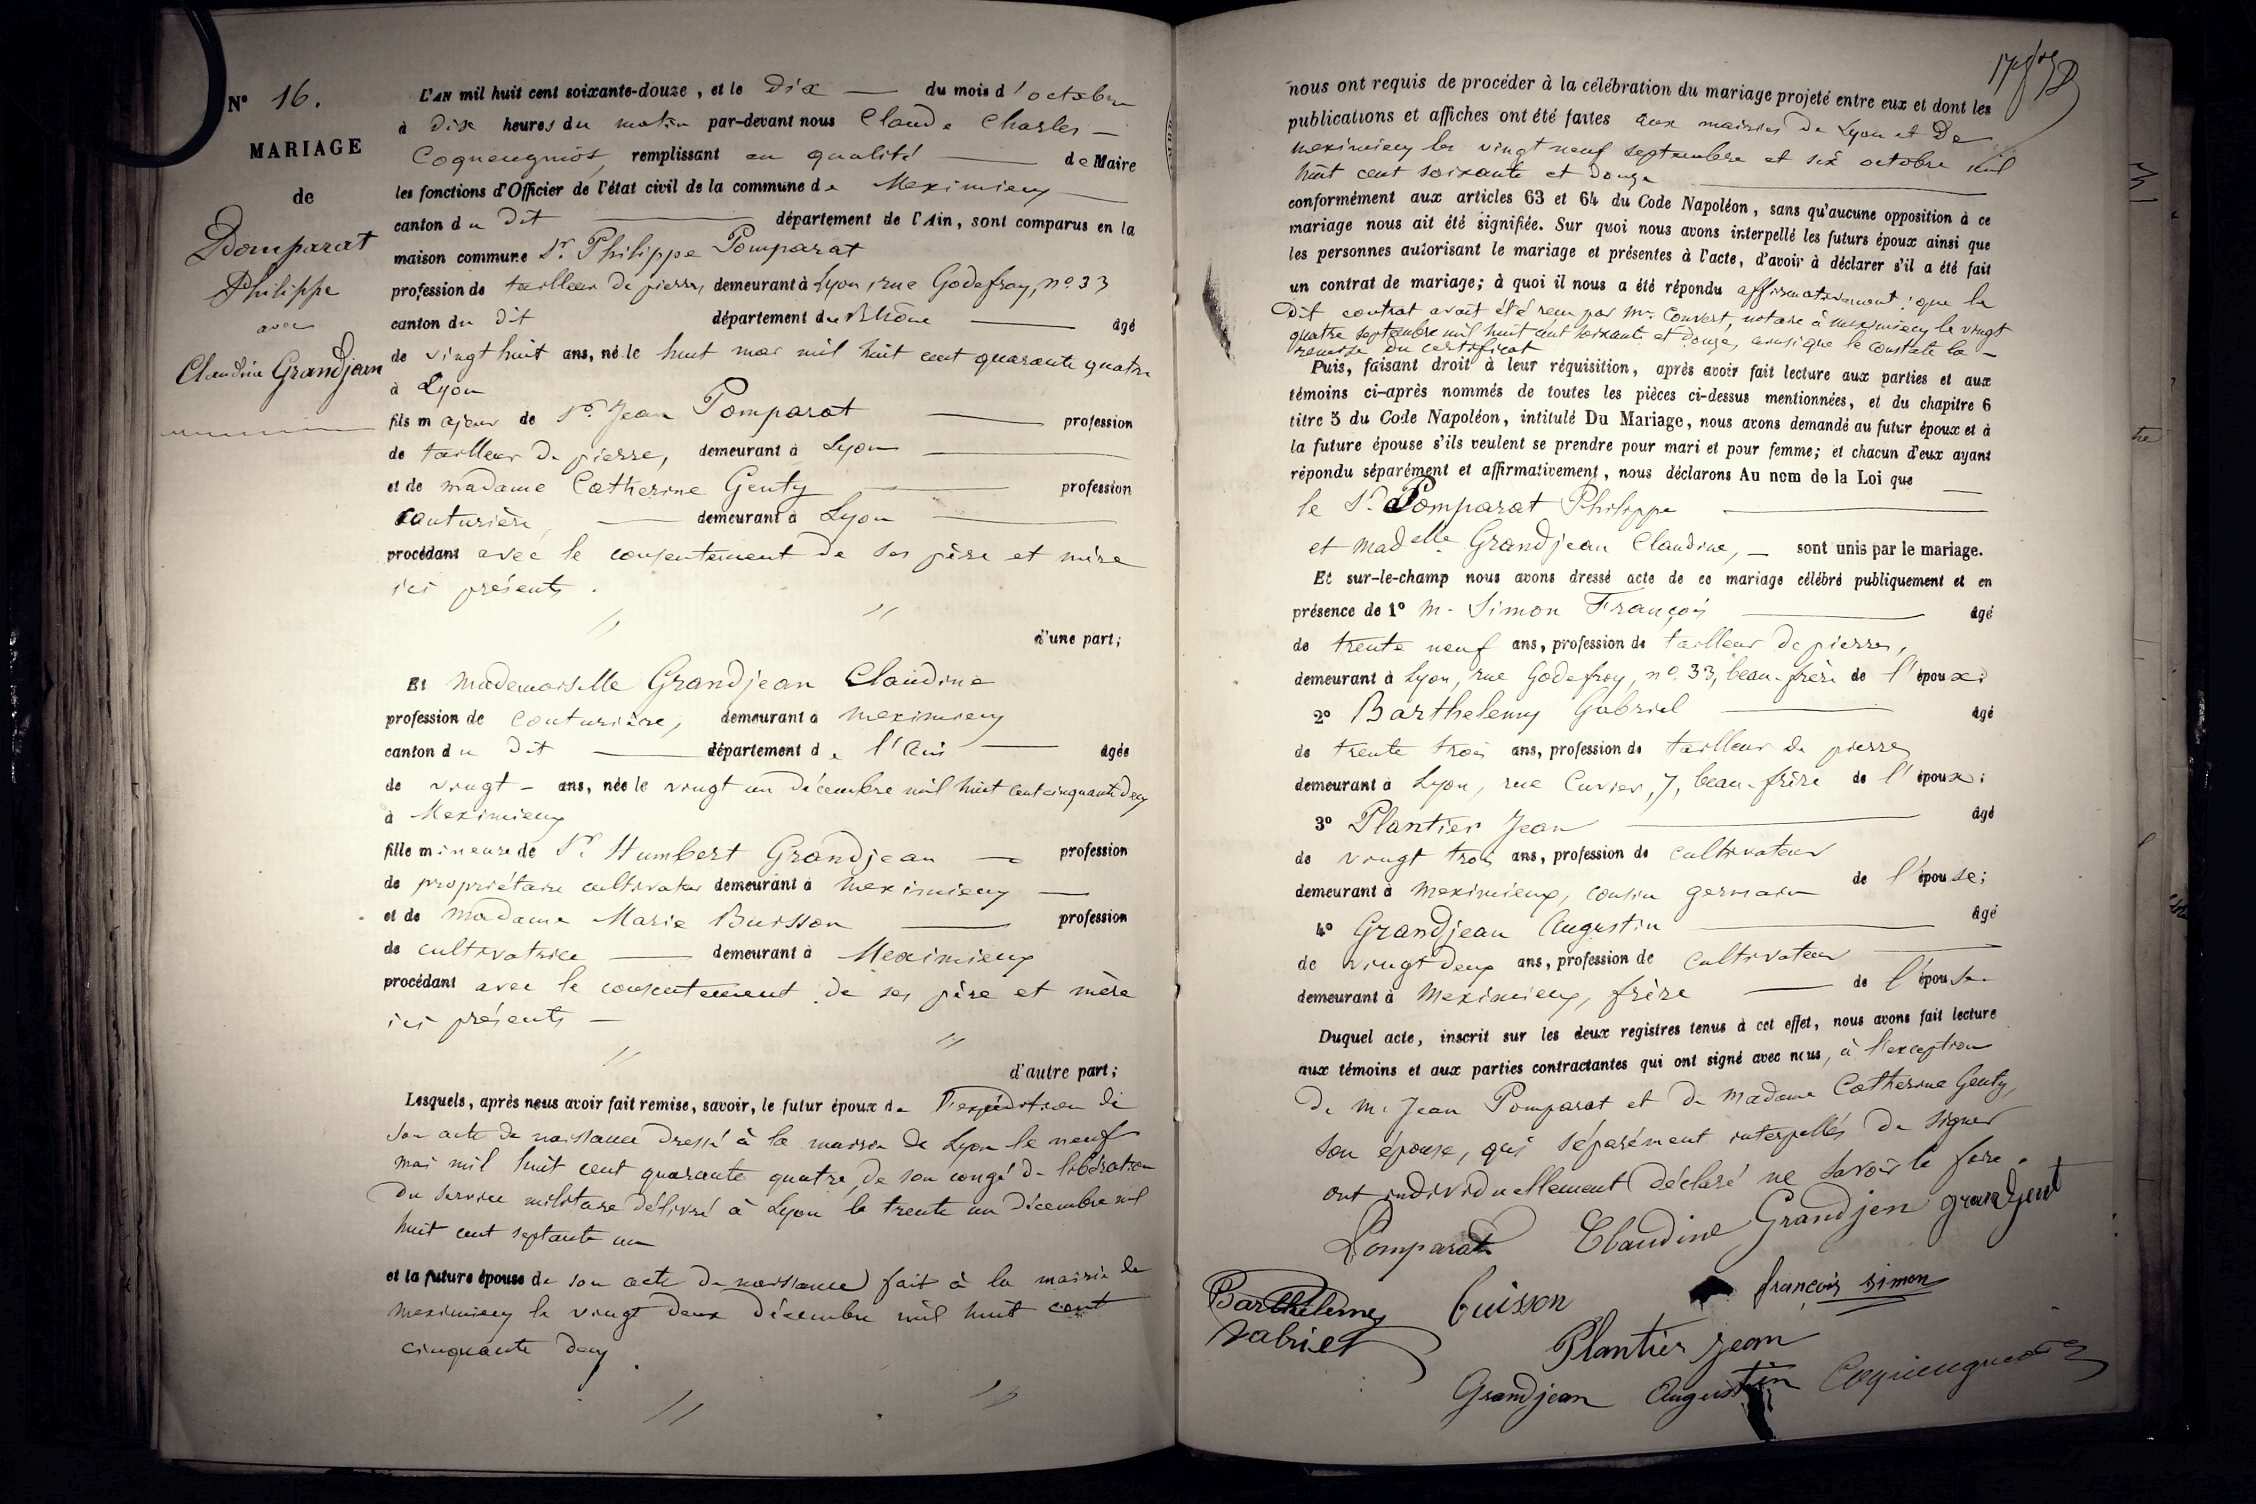 N° 16.
MARIAGE
de
Pomparat
Philippe
avec
Claudine Grandjean
L'AN mil huit cent soixante-douze, et le dix du mois d'octobre
à dix heures du matin par-devant nous Claude Charles
Coquengniot, remplissant en qualité de Maire
les fonctions d'Officier de l'état civil de la commune de Meximieux
canton du dit département de l'Ain, sont comparus en la
maison commune Sr. Philippe Pomparat
profession de tailleur de pierres, demeurant à Lyon, rue Godefroy, n° 33
canton du dit département du Rhône âgé
de vingt huit ans, né le huit mai mil huit cent quarante quatre
à Lyon
fils majeur de Sr. Jean Pomparat profession
de tailleur de pierre, demeurant à Lyon
et de madame Catherine Genty profession
couturière, demeurant à Lyon
procédant avec le consentement de ses père et mère
ici présents.
d'une part;
Et mademoiselle Grandjean Claudine
profession de couturière, demeurant à Meximieux
canton du dit département de l'Ain âgée
de vingt ans, née le vingt un décembre mil huit cent cinquante deux
à Meximieux
fille mineure de Sr. Humbert Grandjean profession
de propriétaire cultivateur demeurant à Meximieux
et de madame Marie Buisson profession
de cultivatrice demeurant à Meximieux
procédant avec le consentement de ses père et mère
ici présents
d'autre part;
Lesquels, après nous avoir fait remise, savoir, le futur époux de l'expédition de
son acte de naissance dressé à la mairie de Lyon le neuf
mai mil huit cent quarante quatre, de son congé de libération
du service militaire délivré à Lyon le trente un décembre mil
huit cent septante un
et la future épouse de son acte de naissance fait à la mairie de
Meximieux le vingt deux décembre mil huit cent
cinquante deux.
nous ont requis de procéder à la célébration du mariage projeté entre eux et dont les
publications et affiches ont été faites aux mairies de Lyon et de
Meximieux les vingt neuf septembre et six octobre mil
huit cent soixante et douze
conformément aux articles 63 et 64 du Code Napoléon, sans qu'aucune opposition à ce
mariage nous ait été signifiée. Sur quoi nous avons interpellé les futurs époux ainsi que
les personnes autorisant le mariage et présentes à l'acte, d'avoir à déclarer s'il a été fait
un contrat de mariage; à quoi il nous a été répondu affirmativement: que le
dit contrat avait été reçu par Mr. Convert, notaire à Meximieux le vingt
quatre septembre mil huit cent soixante et douze, ainsi que le constate la
remise du certificat
Puis, faisant droit à leur réquisition, après avoir fait lecture aux parties et aux
témoins ci-après nommés de toutes les pièces ci-dessus mentionnées, et du chapitre 6
titre 5 du Code Napoléon, intitulé Du Mariage, nous avons demandé au futur époux et à
la future épouse s'ils veulent se prendre pour mari et pour femme; et chacun d'eux ayant
répondu séparément et affirmativement, nous déclarons Au nom de la Loi que
le Sr. Pomparat Philippe
et Madelle Grandjean Claudine, sont unis par le mariage.
Et sur-le-champ nous avons dressé acte de ce mariage célébré publiquement et en
présence de 1° M. Simon François âgé
de trente neuf ans, profession de tailleur de pierres,
demeurant à Lyon, rue Godefroy, n° 33, beau-frère de l'époux;
2° Barthelemy Gabriel âgé
de trente trois ans, profession de tailleur de pierres
demeurant à Lyon, rue Cuvier, 7, beau-frère de l'époux;
3° Plantier Jean âgé
de vingt trois ans, profession de cultivateur
demeurant à Meximieux, cousin germain de l'épouse;
4° Grandjean Augustin âgé
de vingt deux ans, profession de cultivateur
demeurant à Meximieux, frère de l'épouse
Duquel acte, inscrit sur les deux registres tenus à cet effet, nous avons fait lecture
aux témoins et aux parties contractantes qui ont signé avec nous, à l'exception
de M. Jean Pomparat et de Madame Catherine Genty,
son épouse, qui séparément interpellés de signer
ont individuellement déclaré ne savoir le faire.
Pomparat Claudine Grandjen grandjent
Barthelemy Buisson françois simon
Gabriel Plantier Jean
Grandjean Augustin Coquengniot